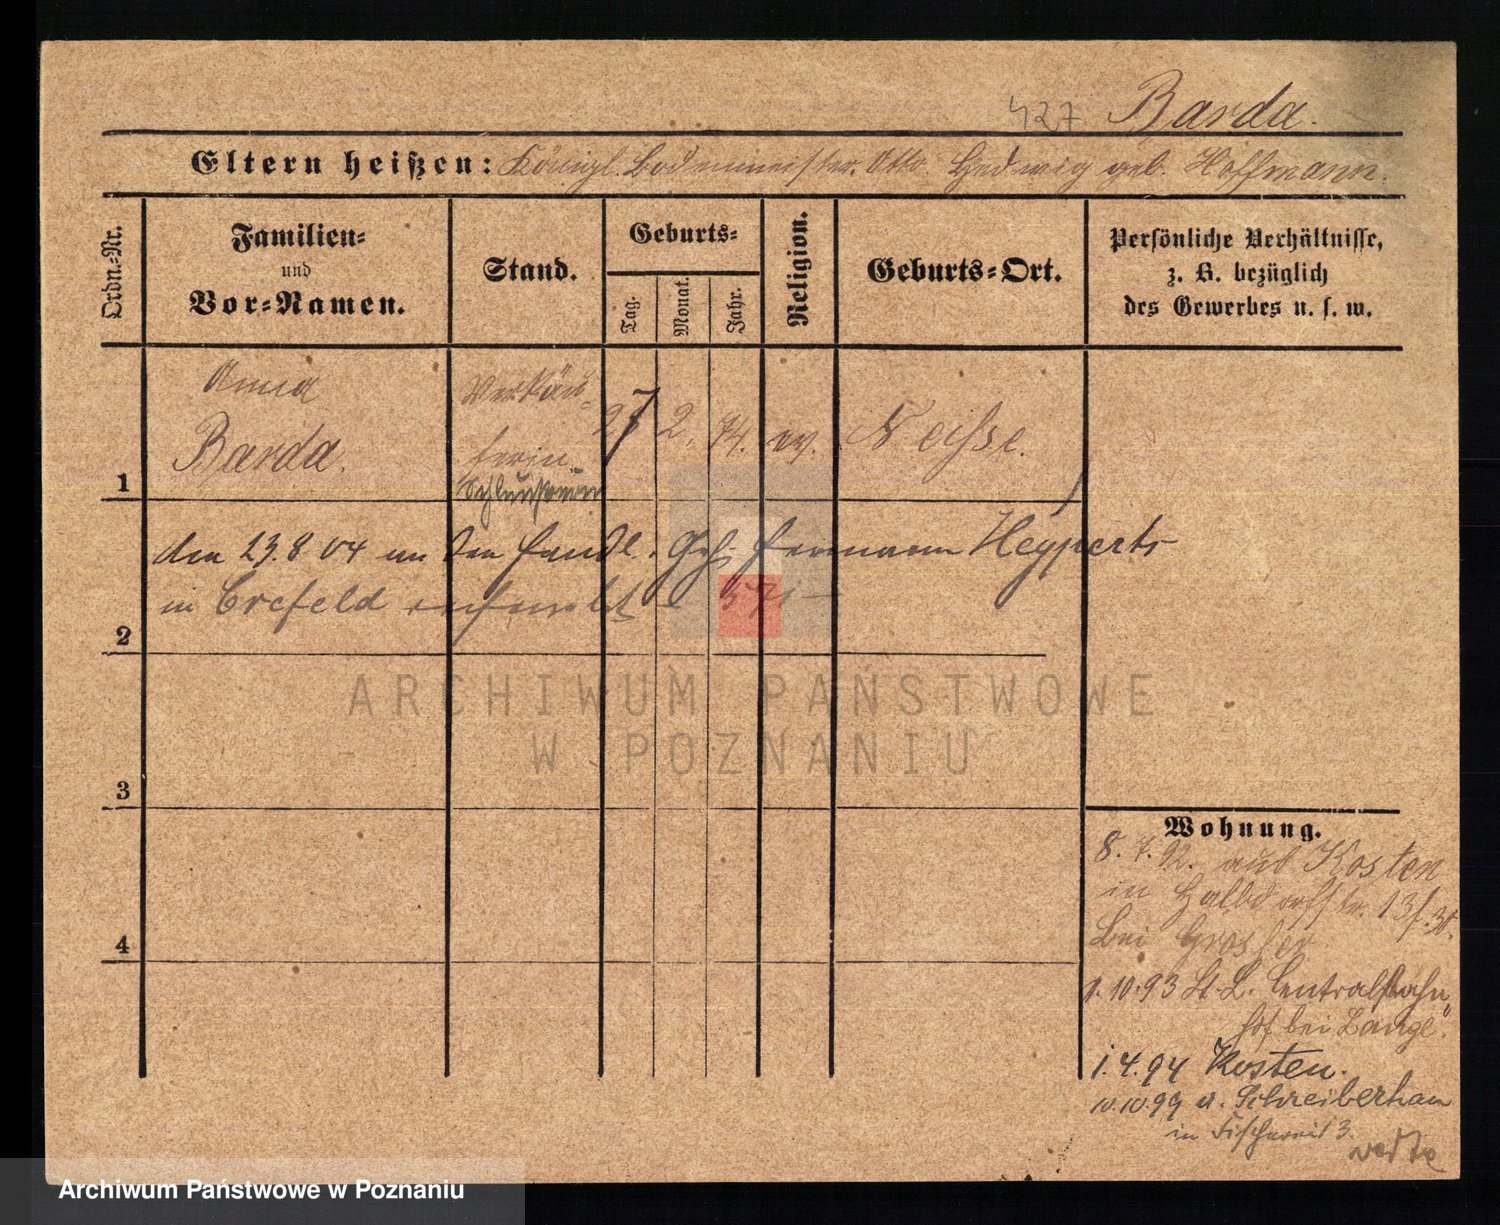 427 Barda.
Eltern heißen: Königl. Bodenmeister. Otto. Hedwig geb. Hoffmann.
Ordn.-Nr.
Familien-
und
Vor-Namen.
Stand.
Geburts-
Tag.
Monat.
Jahr.
Religion.
Geburts-Ort.
Persönliche Verhältnisse,
z. B. bezüglich
des Gewerbes u. s. w.
Anna
Barda.
Verkäu-
ferin
27 2. 74. ev. Neisse.
1
den 23.8.04 an den Handl. Geh. Hermann Heyperts
in Crefeld
2
3
4
Wohnung.
8. 7. 92. aus Kosten
in Halbdorfstr. 13
bei
1.10.93 St. L. Centralbahn
hof bei Lange.
1.4.94 Kosten.
10.10.99 a. Schreiberhau
in Fischerei 3.
ARCHIWUM PAŃSTWOWE
W POZNANIU
Archiwum Państwowe w Poznaniu